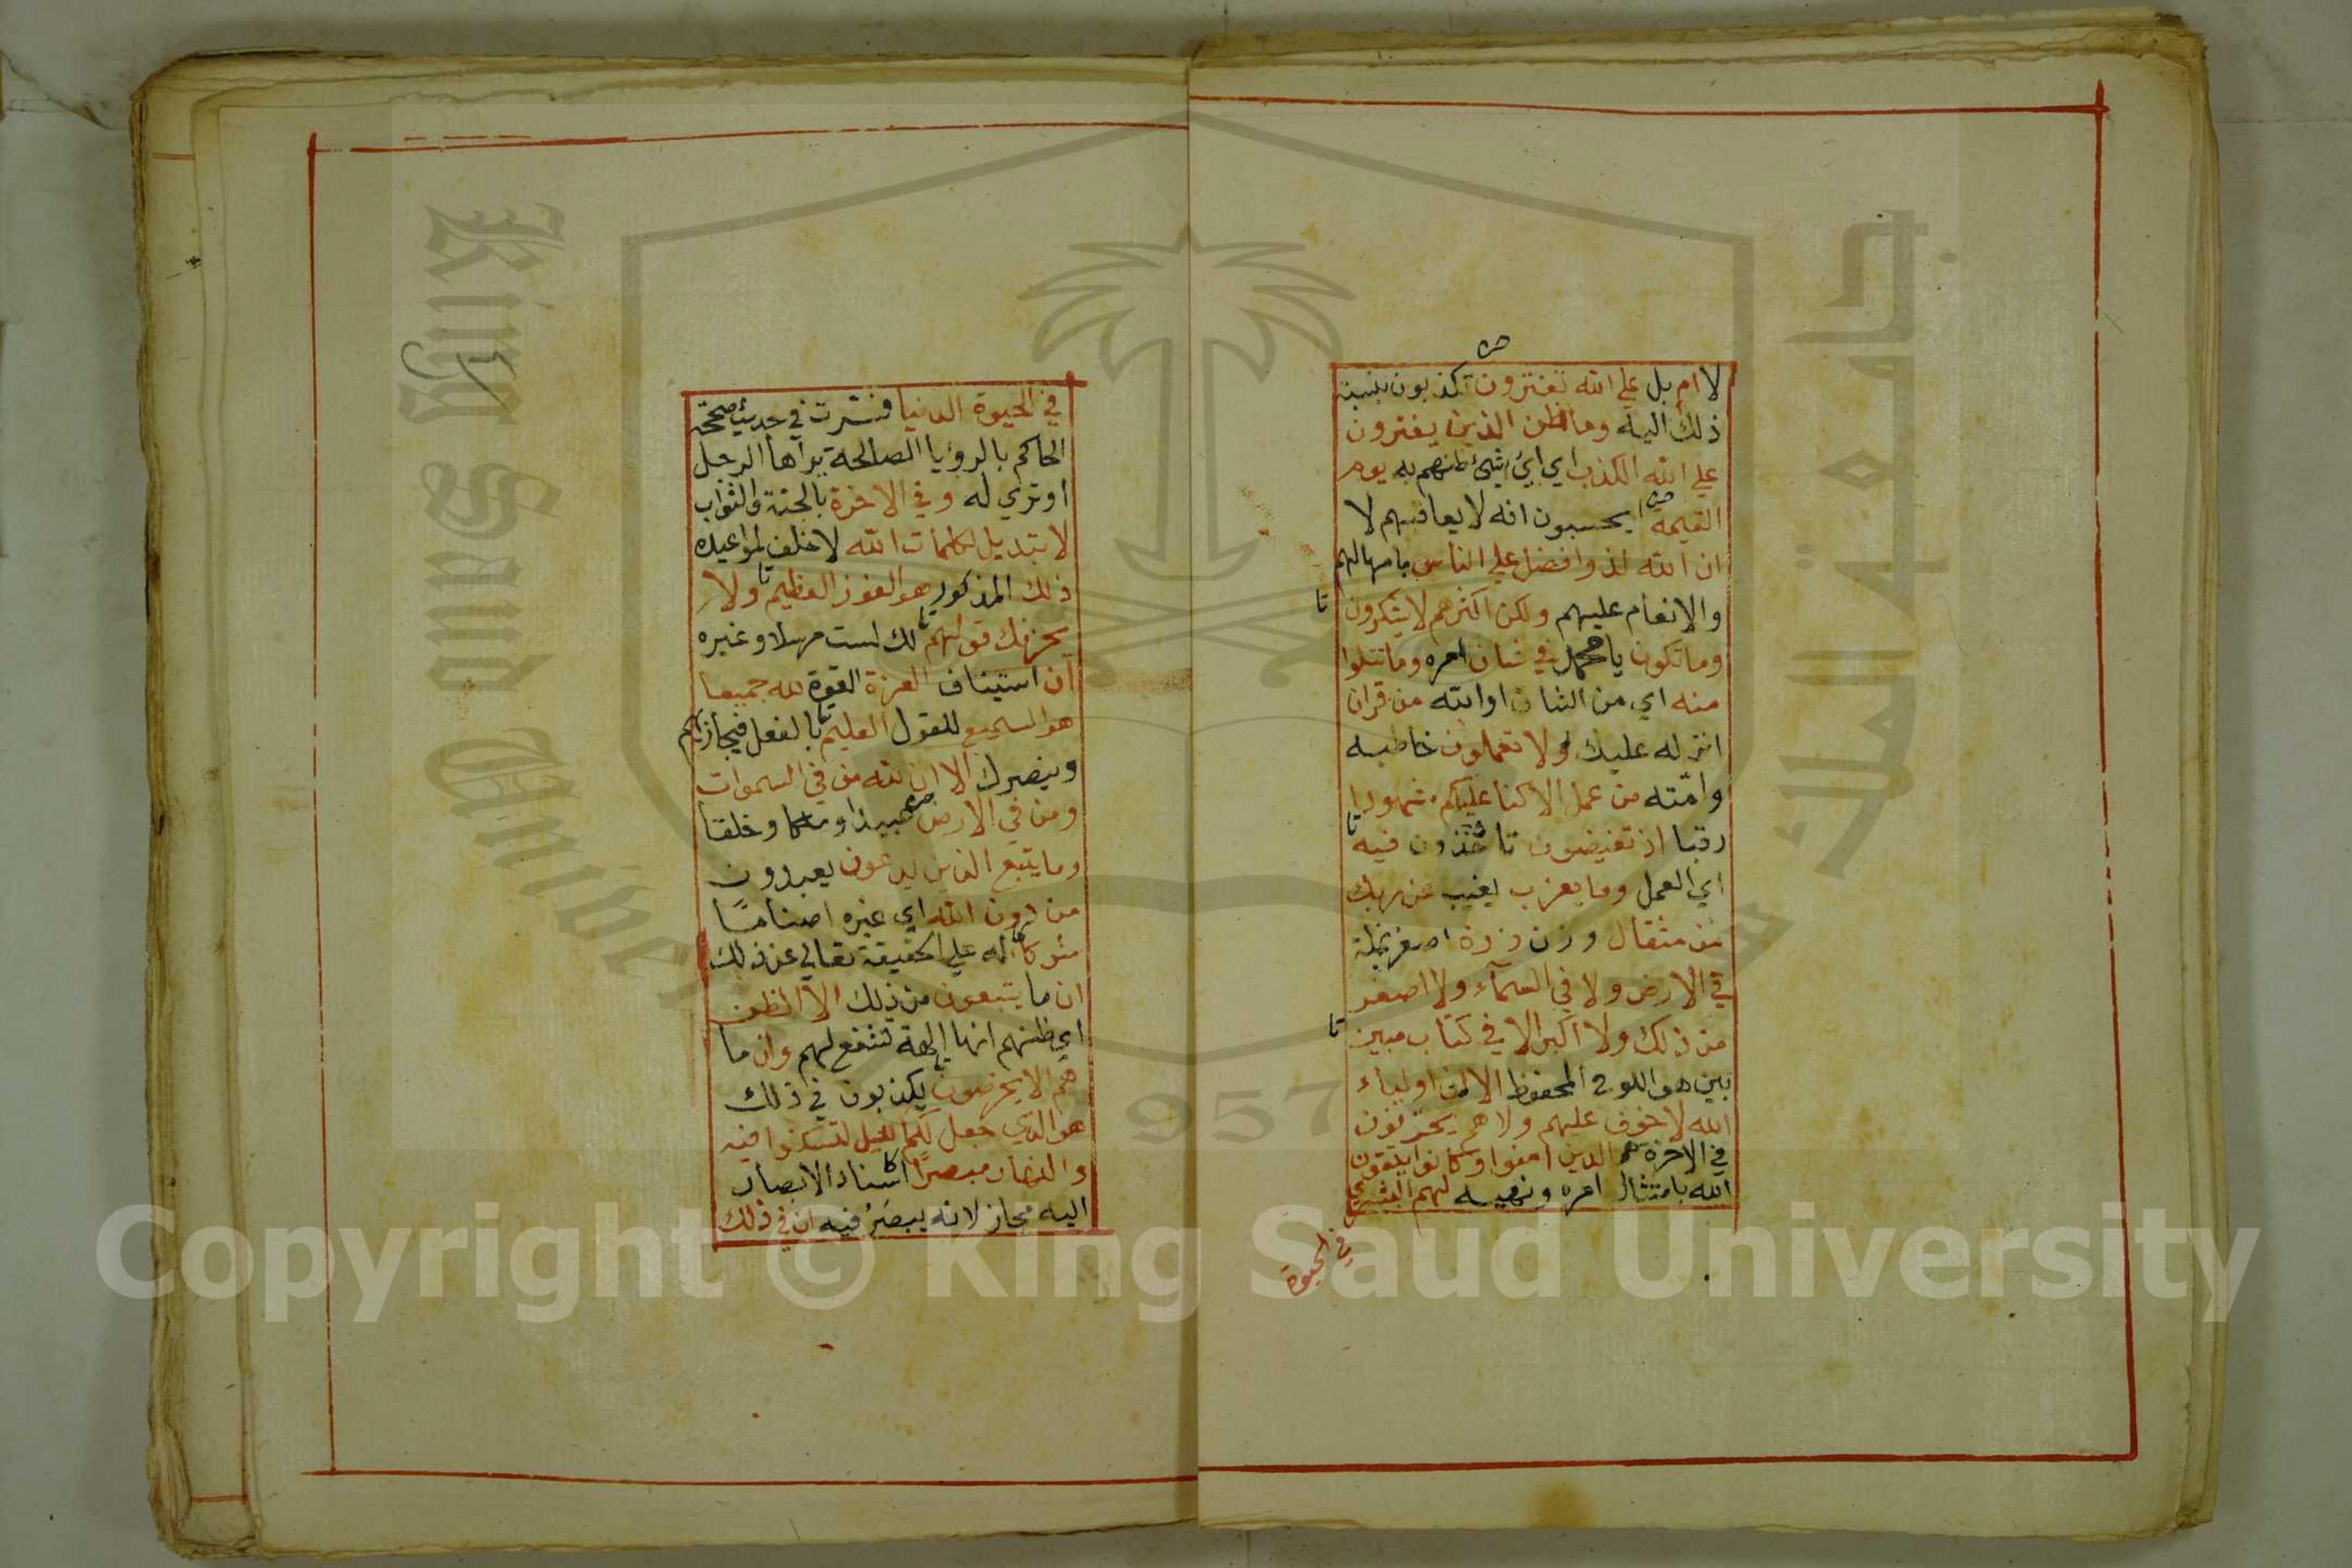 لا ام بل علي الله تفترون تكذبون بنسبة
ذلك اليه وما ظن الذين يفترون
علي الله الكذب اي اي شئ ظنهم به يوم
القيمة ايحسبون انه لا يعاقبهم لا
ان الله لذو افضل علي الناس بامهالهم
والانعام عليهم ولكن اكثرهم لا يشكرون
وما تكون يا محمد في شان امره وما تتلوا
منه اي من الشان او الله من قران
انزله عليك ولا تعملون خاطبه
وامته من عمل الا كنا عليكم شهودا
رقبا اذ تفيضون تاخذون فيه
اي العمل وما يعزب يغيب عن ربك
من مثقال وزن ذرة اصغر نملة
في الارض ولا في السمآء ولا اصغر
من ذلك ولا اكبر الا في كتاب مبين
بين هو اللوح المحفوظ الا ان اولياء
الله لا خوف عليهم ولا هم يحزنون
في الاخرة هم الذين امنوا وكانوا يتقون
الله بامتثال امره ونهيه لهم البشري
في الحيوة
في الحيوة الدنيا فسرت في حديث صححه
الحاكم بالرؤيا الصالحة يراها الرجل
او تري له وفي الاخرة بالجنة والثواب
لا تبديل لكلمات الله لا خلف لمواعيده
ذلك المذكور هو الفوز العظيم ولا
يحزنك قولهم لك لست مرسلا وغيره
ان استيناف العزة القوة لله جميعا
هو السميع للقول العليم بالفعل فيجازيهم
وينصرك الا ان لله من في السموات
ومن في الارض عبيدا وملكا وخلقا
وما يتبع الذين يدعون يعبدون
من دون الله اي غيره اصناما
شركاء له علي الحقيقة تعالي عن ذلك
ان ما يتبعون من ذلك الا الظن
اي ظنهم انها الهة تشفع لهم وان ما
هم الا يخرصون يكذبون في ذلك
هو الذي جعل لكم الليل لتسكنوا فيه
والنهار مبصرا اسناد الابصار
اليه مجاز لانه يبصر فيه ان في ذلك
King Saud University
جامعة الملك
1957
Copyright © King Saud University